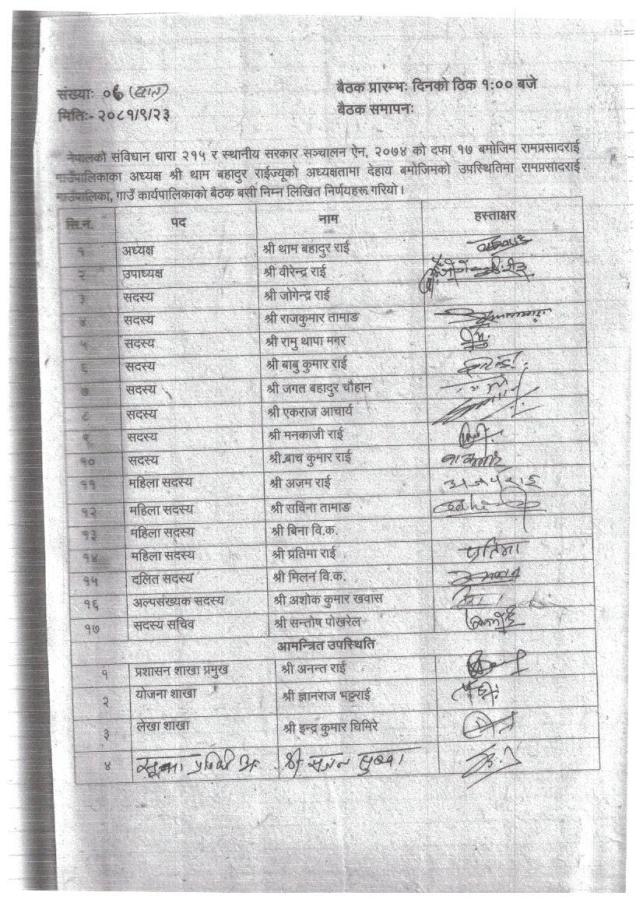 संख्याः ०६
बैठक प्रारम्भः दिनको ठिक १:०० बजे
मितिः- २०८१/९/२३
बैठक समापनः
नेपालको संविधान धारा २१५ र स्थानीय सरकार सञ्चालन ऐन, २०७४ को दफा १७ बमोजिम रामप्रसादराई
गाउँपालिकाका अध्यक्ष श्री थाम बहादुर राईज्यूको अध्यक्षतामा देहाय बमोजिमको उपस्थितिमा रामप्रसादराई
गाउँपालिका, गाउँ कार्यपालिकाको बैठक बसी निम्न लिखित निर्णयहरू गरियो ।
सि.न. पद नाम हस्ताक्षर
१ अध्यक्ष श्री थाम बहादुर राई
२ उपाध्यक्ष श्री वीरेन्द्र राई
३ सदस्य श्री जोगेन्द्र राई
४ सदस्य श्री राजकुमार तामाङ
५ सदस्य श्री रामु थापा मगर
६ सदस्य श्री बाबु कुमार राई
७ सदस्य श्री जगत बहादुर चौहान
८ सदस्य श्री एकराज आचार्य
९ सदस्य श्री मनकाजी राई
१० सदस्य श्री बाच कुमार राई
११ महिला सदस्य श्री अजम राई
१२ महिला सदस्य श्री सविना तामाङ
१३ महिला सदस्य श्री बिना वि.क.
१४ महिला सदस्य श्री प्रतिमा राई प्रतिमा
१५ दलित सदस्य श्री मिलन वि.क.
१६ अल्पसंख्यक सदस्य श्री अशोक कुमार खवास
१७ सदस्य सचिव श्री सन्तोष पोखरेल
आमन्त्रित उपस्थिति
१ प्रशासन शाखा प्रमुख श्री अनन्त राई
२ योजना शाखा श्री ज्ञानराज भट्टराई
३ लेखा शाखा श्री इन्द्र कुमार घिमिरे
४ सूचना प्रविधि अ. श्री सृजन सुब्बा